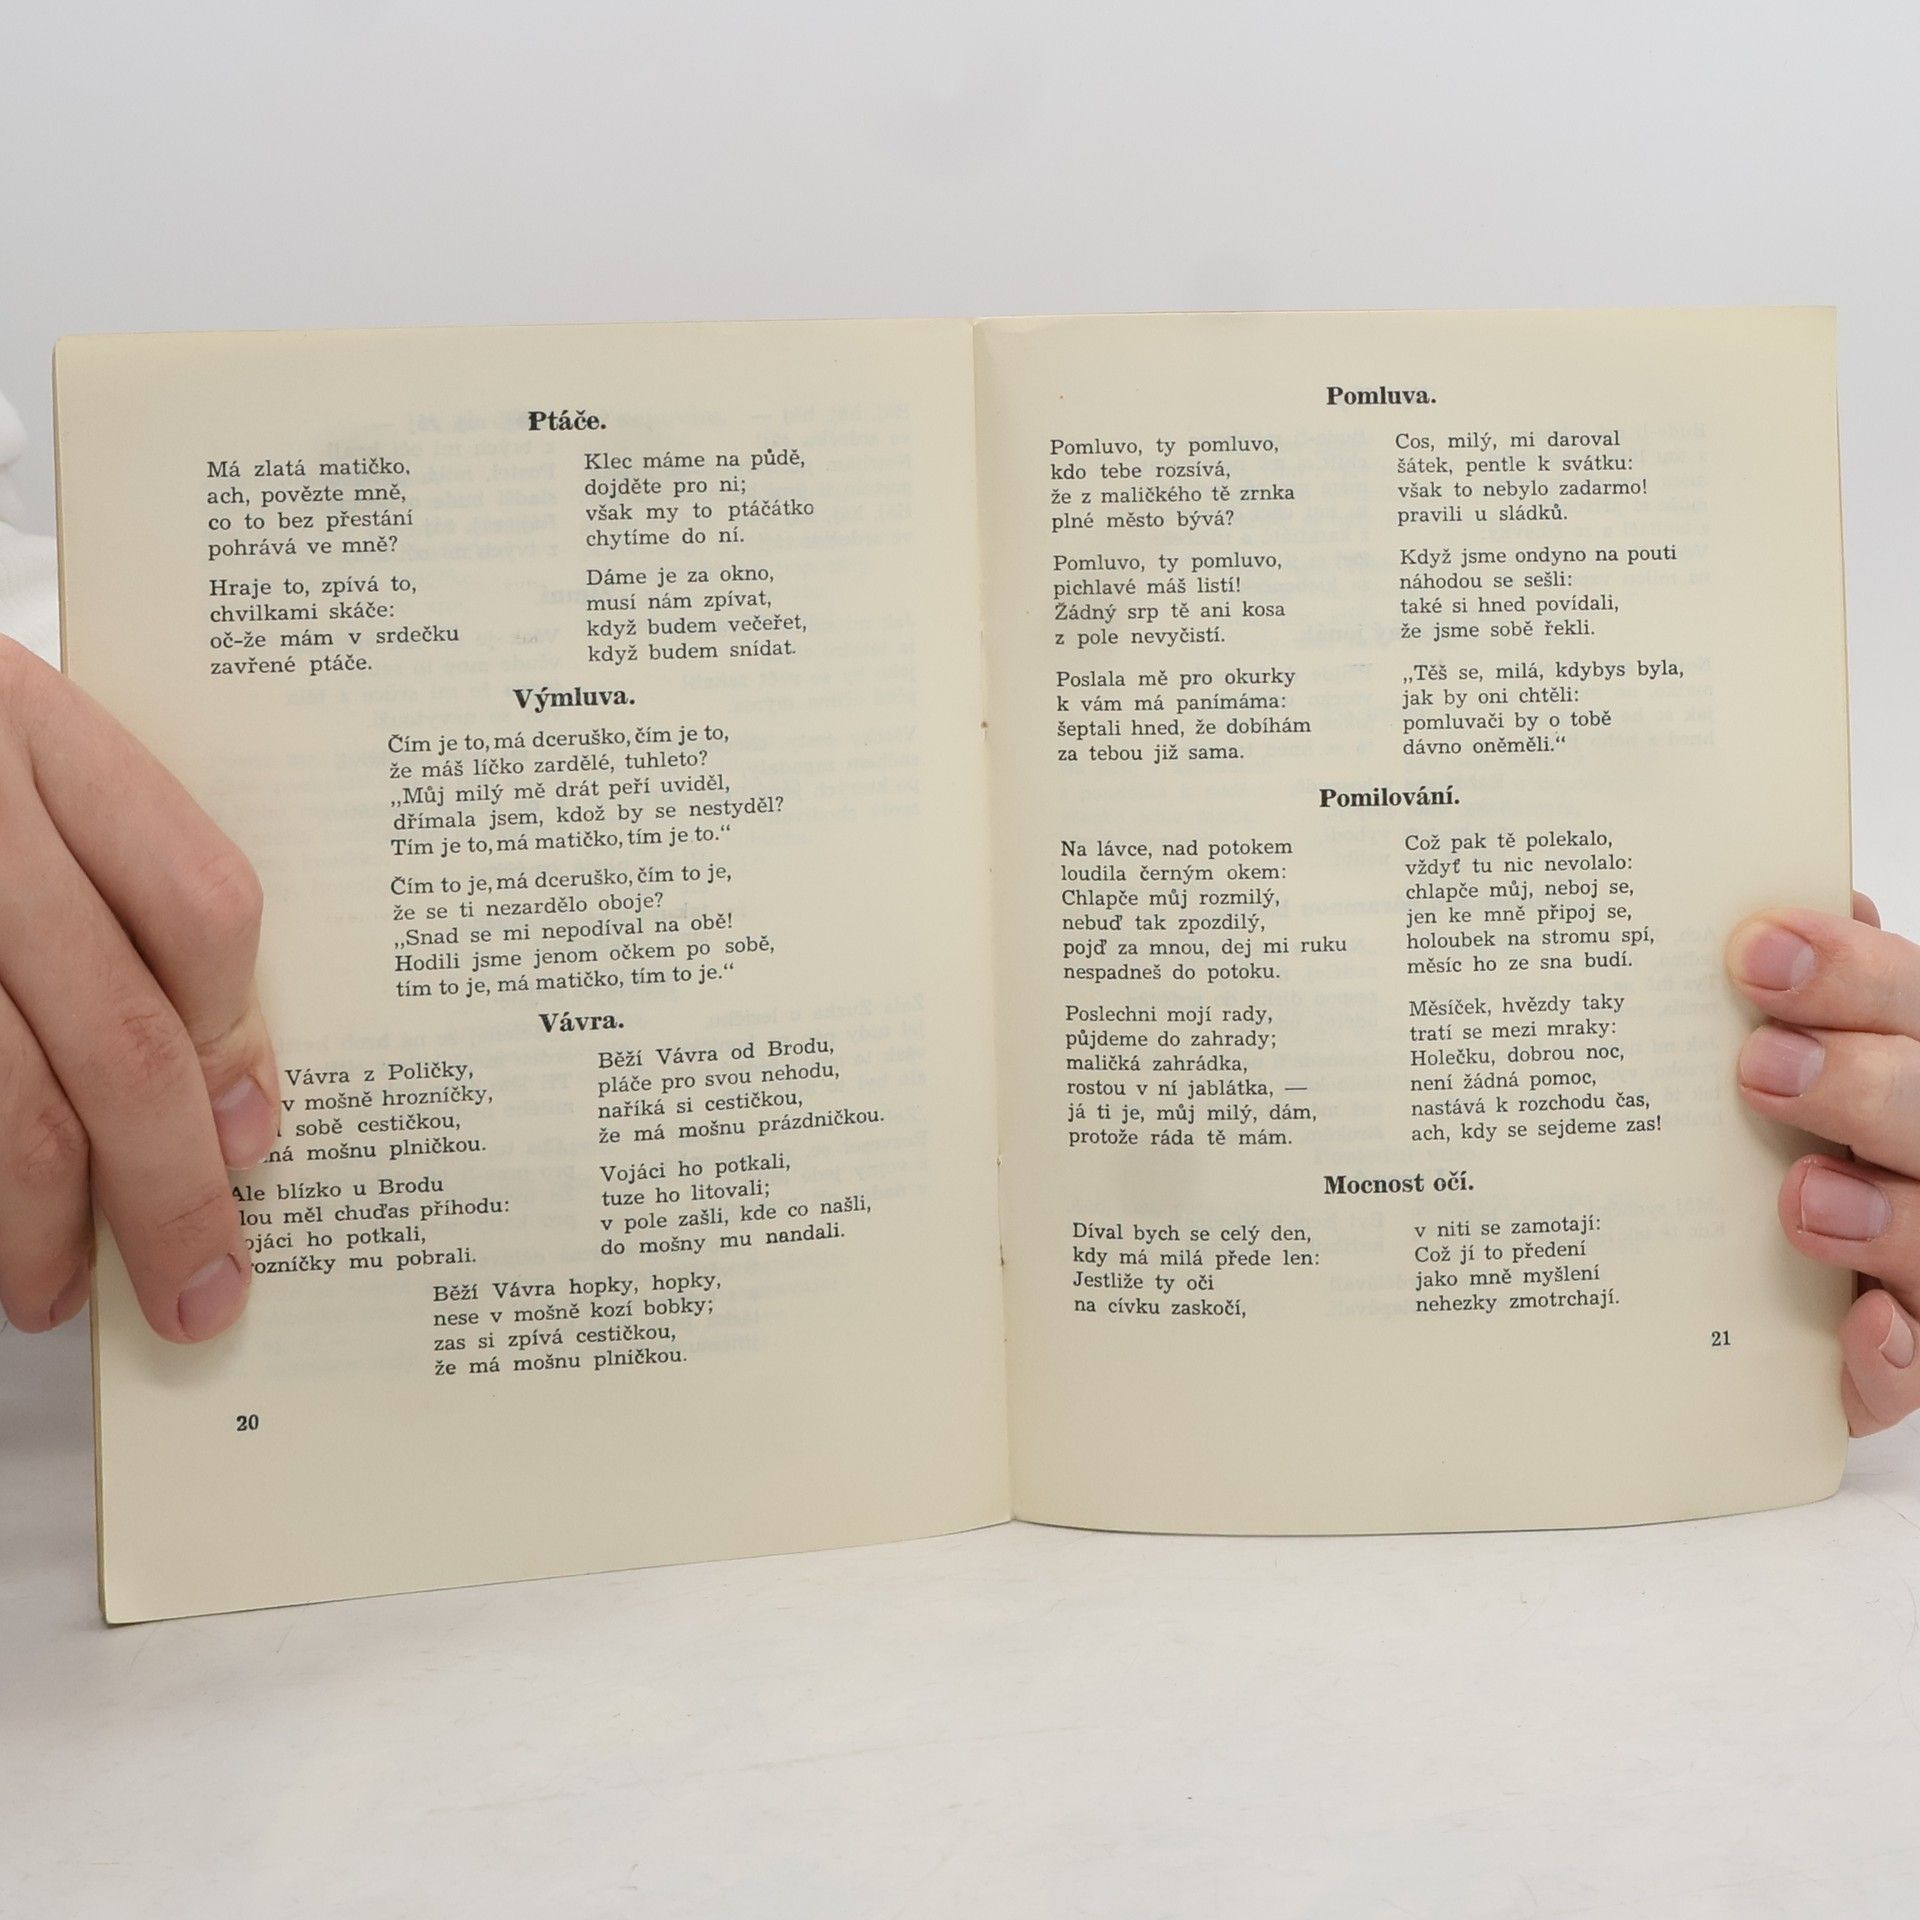 Ptáče.
Má zlatá matičko,
ach, povězte mně,
co to bez přestání
pohrává ve mně?
Hraje to, zpívá to,
chvilkami skáče:
oč-že mám v srdečku
zavřené ptáče.
Klec máme na půdě,
dojděte pro ni;
však my to ptáčátko
chytíme do ní.
Dáme je za okno,
musí nám zpívat,
když budem večeřet,
když budem snídat.
Výmluva.
Čím je to, má dceruško, čím je to,
že máš líčko zardělé, tuhleto?
„Můj milý mě drát peří uviděl,
dřímala jsem, kdož by se nestyděl?
Tím je to, má matičko, tím je to.“
Čím to je, má dceruško, čím to je,
že se ti nezardělo oboje?
„Snad se mi nepodíval na obě!
Hodili jsme jenom očkem po sobě,
tím to je, má matičko, tím to je.“
Vávra.
Vávra z Poličky,
v mošně hrozníčky,
sobě cestičkou,
má mošnu plničkou.
Ale blízko u Brodu
měl chuďas příhodu:
ho potkali,
mu pobrali.
Běží Vávra od Brodu,
pláče pro svou nehodu,
naříká si cestičkou,
že má mošnu prázdničkou.
Vojáci ho potkali,
tuze ho litovali;
v pole zašli, kde co našli,
do mošny mu nandali.
Běží Vávra hopky, hopky,
nese v mošně kozí bobky;
zas si zpívá cestičkou,
že má mošnu plničkou.
20
Pomluva.
Pomluvo, ty pomluvo,
kdo tebe rozsívá,
že z maličkého tě zrnka
plné město bývá?
Pomluvo, ty pomluvo,
pichlavé máš listí!
Žádný srp tě ani kosa
z pole nevyčistí.
Poslala mě pro okurky
k vám má panímáma:
šeptali hned, že dobíhám
za tebou již sama.
Cos, milý, mi daroval
šátek, pentle k svátku:
však to nebylo zadarmo!
pravili u sládků.
Když jsme ondyno na pouti
náhodou se sešli:
také si hned povídali,
že jsme sobě řekli.
„Těš se, milá, kdybys byla,
jak by oni chtěli:
pomluvači by o tobě
dávno oněměli.“
Pomilování.
Na lávce, nad potokem
loudila černým okem:
Chlapče můj rozmilý,
nebuď tak zpozdilý,
pojď za mnou, dej mi ruku
nespadneš do potoku.
Poslechni mojí rady,
půjdeme do zahrady;
maličká zahrádka,
rostou v ní jablátka, —
já ti je, můj milý, dám,
protože ráda tě mám.
Což pak tě polekalo,
vždyť tu nic nevolalo:
chlapče můj, neboj se,
jen ke mně připoj se,
holoubek na stromu spí,
měsíc ho ze sna budí.
Měsíček, hvězdy taky
tratí se mezi mraky:
Holečku, dobrou noc,
není žádná pomoc,
nastává k rozchodu čas,
ach, kdy se sejdeme zas!
Mocnost očí.
Díval bych se celý den,
kdy má milá přede len:
Jestliže ty oči
na cívku zaskočí,
v niti se zamotají:
Což jí to předení
jako mně myšlení
nehezky zmotrchají.
21